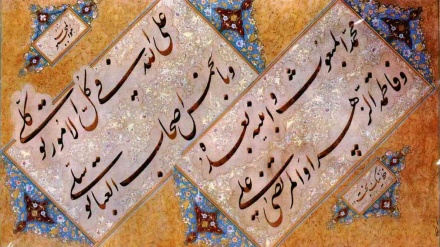 علی الله فی کل الامور توکلی
و بالخمس اصحاب العبا توسلی
محمد المبعوث و ابنیه بعده
و فاطمة الزهرا و المرتضی علی